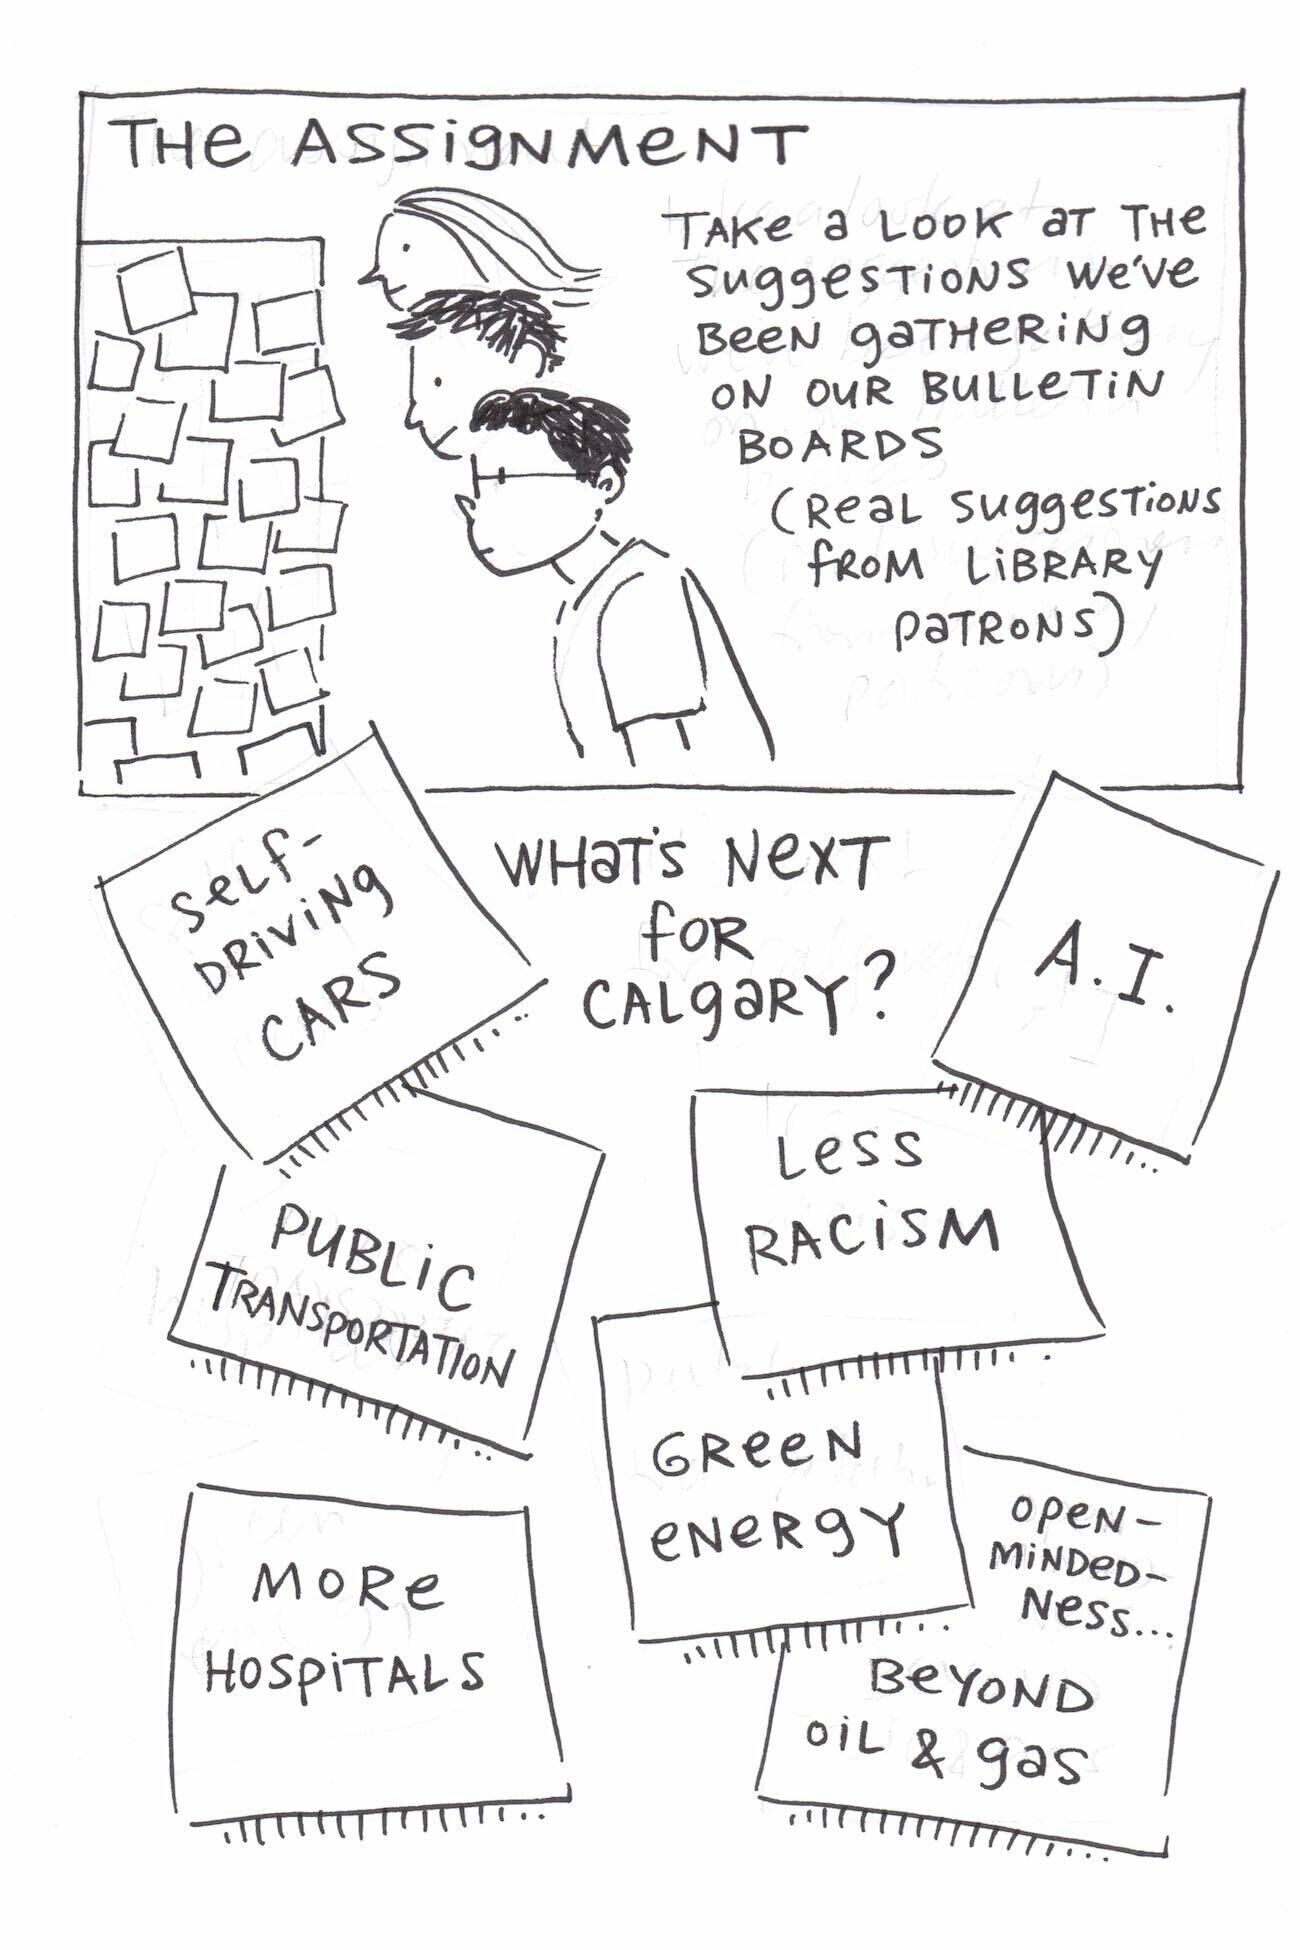 THE ASSIGNMENT
TAKE A LOOK AT THE
SUGGESTIONS WE'VE
BEEN GATHERING
ON OUR BULLETIN
BOARDS
(REAL SUGGESTIONS
FROM LIBRARY
PATRONS)
WHAT'S NEXT
FOR
CALGARY?
SELF-
DRIVING
CARS
A.I.
PUBLIC
TRANSPORTATION
LESS
RACISM
GREEN
ENERGY
MORE
HOSPITALS
OPEN-
MINDED-
NESS...
BEYOND
OIL & GAS